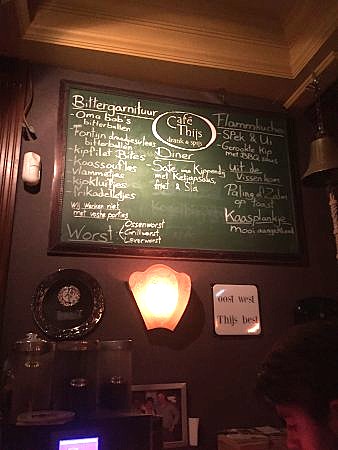 Bittergarnituur
- Oma bob's
bitterballen
- Fontijn draadjesvlees
bitterballen
- Kipfilet Bites
- Kaassoufles
- Vlammetjes
- Kipkluifjes
- Frikadelletjes
Wij Werken niet
met vaste porties
Worst
Ossenworst
Grillworst
Leverworst
Café
Thijs
drank & spijs
Diner
met Ketjapsaus,
friet & Sla
Flammkuchen
- Spek & Ui
- Gerookte Kip
met BBQ saus
uit de
Vissenkom
op toast
Kaasplankje
mooi aangekleed
oost west
Thijs best